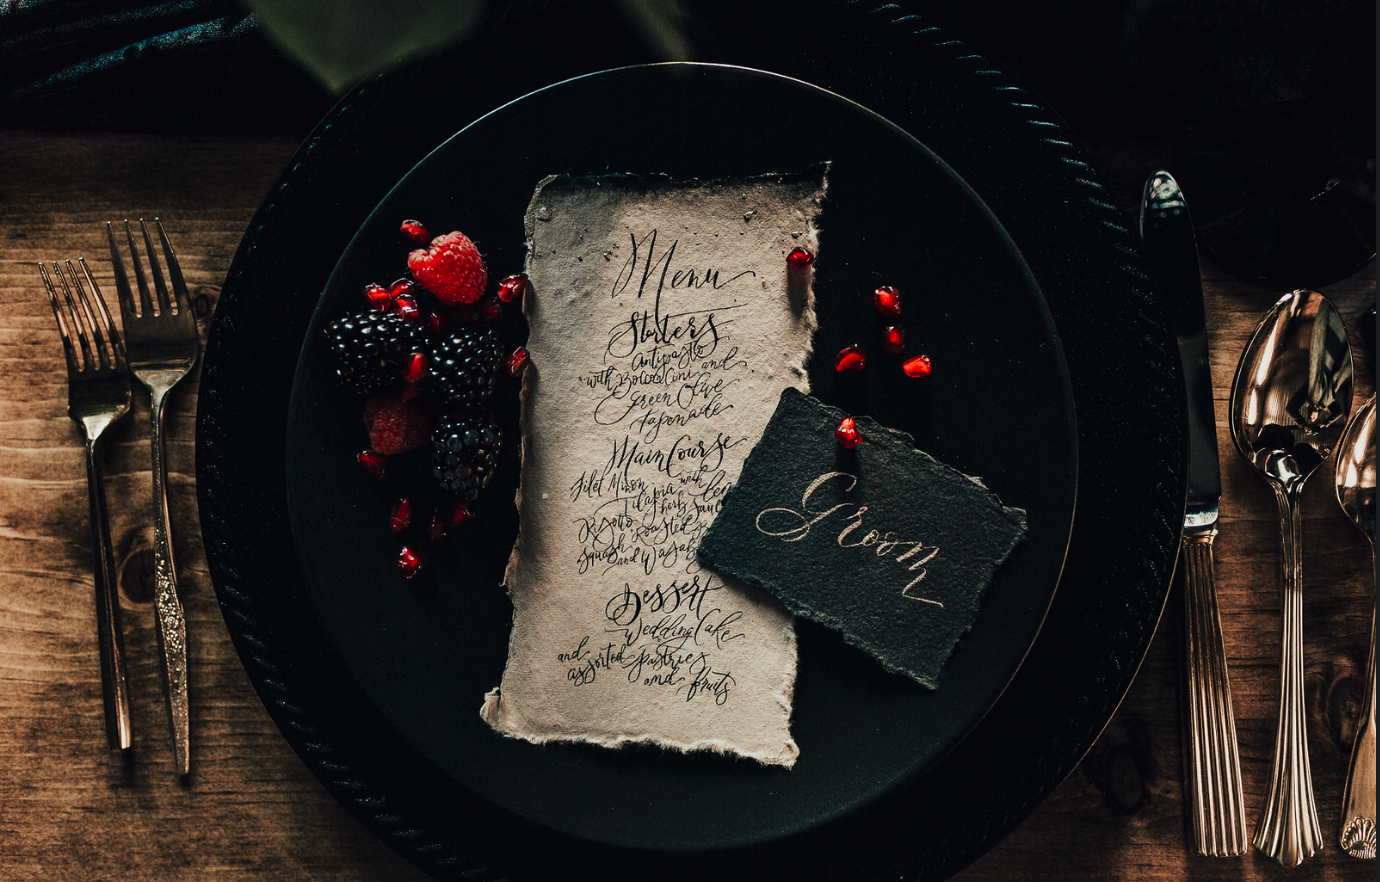 Menu
Starters
Antipasto
with Bocconcini and
Green Olive
tapenade
Main Course
Filet Minon
Tilapia with
herb sauce
Risotto, roasted
squash and
Dessert
Wedding Cake
and assorted pastries
and fruits
Groom